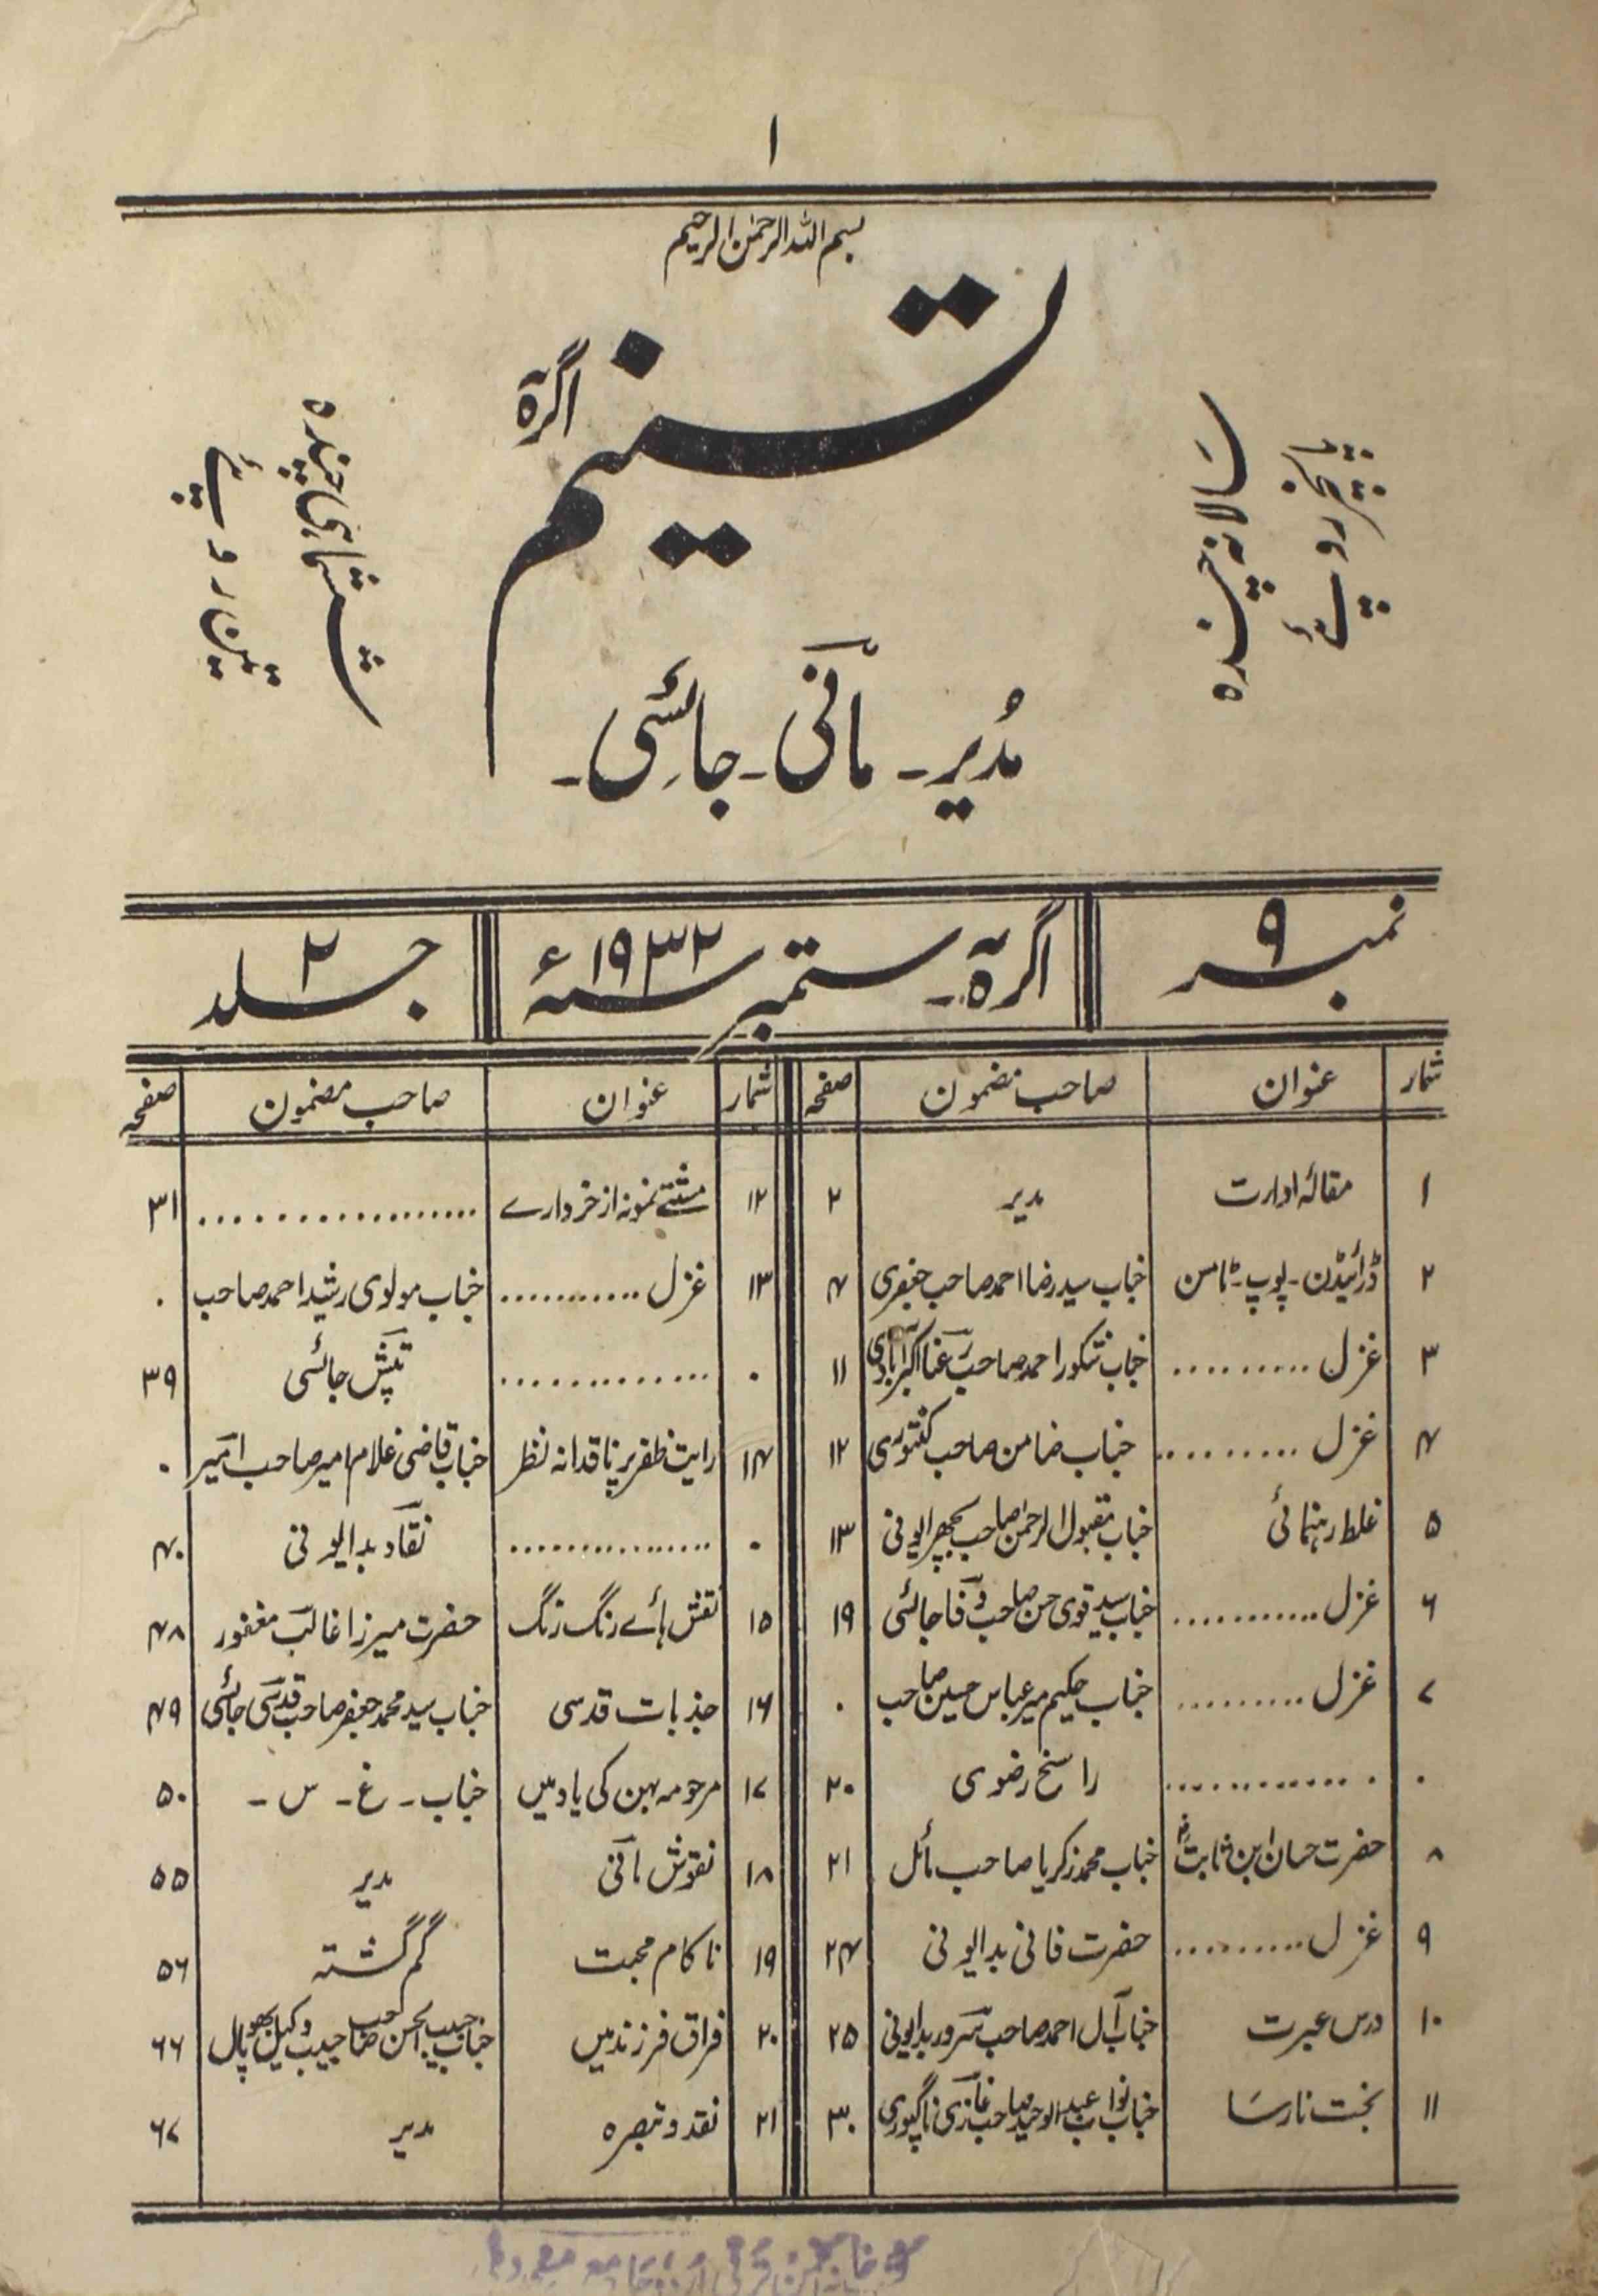 ۱
بسم اللہ الرحمٰن الرحیم
تسنیم
اگرہ
سالانہ چندہ
پانچ روپئے
ششماہی چندہ
تین روپئے
مُدیر - مانی - جائسی -
نمبر ۹
اگرہ - ستمبر سنہ ۱۹۳۲ء
جلد ۲
شمار عنوان صاحب مضمون صفحہ
۱ مقالۂ ادارت مدیر ۲
۲ ڈرائیڈن - پوپ - ٹامسن جناب سید رضا احمد صاحب جعفری ۴
۳ غزل .......... جناب شکور احمد صاحب رعنا اکبرآبادی ۱۱
۴ غزل .......... جناب ضامن صاحب کنتوری ۱۲
۵ غلط رہنمائی جناب مقبول الرحمٰن صاحب بچھرایونی ۱۳
۶ غزل .......... جناب سید قوی حسن صاحب وفا جائسی ۱۹
۷ غزل .......... جناب حکیم میر عباس حسین صاحب ۰
۰ .......... راسخ رضوی ۲۰
۸ حضرت حسان ابن ثابتؓ جناب محمد زکریا صاحب مائل ۲۱
۹ غزل .......... حضرت فانی بدایونی ۲۴
۱۰ درس عبرت جناب آل احمد صاحب سرور بدایونی ۲۵
۱۱ بخت نارسا جناب نواب عبدالوحید صاحب غازی ناگپوری ۳۰
شمار عنوان صاحب مضمون صفحہ
۱۲ مشتے نمونہ از خروارے .......... ۳۱
۱۳ غزل .......... جناب مولوی رشید احمد صاحب ۰
۰ .......... تپش جائسی ۳۹
۱۴ رایت ظفر پر ناقدانہ نظر جناب قاضی غلام امیر صاحب امیر ۰
۰ .......... نقاد بدایونی ۴۰
۱۵ نقش ہائے رنگ رنگ حضرت میرزا غالب مغفور ۴۸
۱۶ جذبات قدسی جناب سید محمد جعفر صاحب قدسی جائسی ۴۹
۱۷ مرحومہ بہن کی یاد میں جناب - غ - س - ۵۰
۱۸ نقوش مانی مدیر ۵۵
۱۹ ناکام محبت گم گشتہ ۵۶
۲۰ فراق فرزند میں جناب حبیب الحسن صاحب حبیب وکیل بھوپال ۶۶
۲۱ نقد و تبصرہ مدیر ۶۷